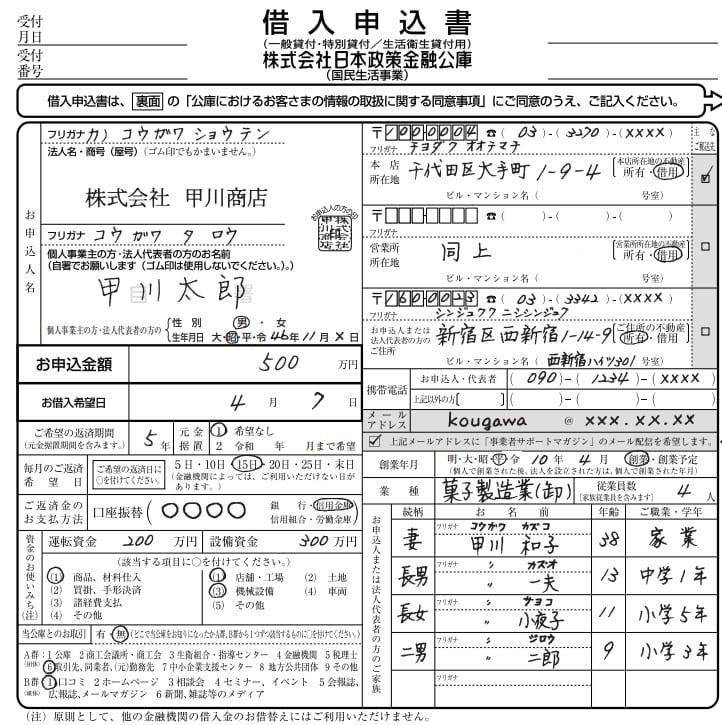 借入申込書
(一般貸付・特別貸付／生活衛生貸付用)
株式会社日本政策金融公庫
(国民生活事業)
受付
月日
受付
番号
借入申込書は、裏面の「公庫におけるお客さまの情報の取扱に関する同意事項」にご同意のうえ、ご記入ください。
お申込人名
フリガナ カ) コウガワ ショウテン
法人名・商号(屋号)(ゴム印でもかまいません。)
株式会社 甲川商店
お申込人の方の印
フリガナ コウガワ タロウ
個人事業主の方・法人代表者の方のお名前
(自署でお願いします(ゴム印は使用しないでください。)。)
甲川太郎
個人事業主の方・法人代表者の方の
性別 男・女
生年月日 大・昭・平・令 46年 11月 X日
〒100-0004 ☎(03)-(3270)-(XXXX)
フリガナ チヨダク オオテマチ
本店
所在地
千代田区大手町1-9-4
本店所在地の不動産
所有・借用
ビル・マンション名( 号室)
〒 ☎( )-( )-( )
フリガナ
営業所
所在地
同上
営業所所在地の不動産
所有・借用
ビル・マンション名( 号室)
〒160-0023 ☎(03)-(3342)-(XXXX)
フリガナ シンジュクク ニシシンジュク
お申込人または
法人代表者の方の
ご住所
新宿区西新宿1-14-9
ご住所の不動産
所有・借用
ビル・マンション名(西新宿ハイツ301 号室)
お申込金額 500 万円
お借入希望日 4月 7日
携帯電話
お申込人・代表者 (090)-(1234)-(XXXX)
上記以外の方[ ] ( )-( )-( )
メール
アドレス
kougawa @ xxx.xx.xx
上記メールアドレスに「事業者サポートマガジン」のメール配信を希望します。
ご希望の返済期間
(元金据置期間を含みます。)
5年
元金
据置
1 希望なし
2 令和 年 月まで希望
毎月のご返済
希望日
ご希望の返済日に
○を付けてください。
5日・10日・15日・20日・25日・末日
(金融機関によっては、ご利用いただけない日が
あります。)
ご返済金の
お支払方法
口座振替(○○○○
銀行・信用金庫
信用組合・労働金庫)
創業年月 明・大・昭・平・令 10年 4月 創業・創業予定
(個人で創業された後、法人を設立された方は、個人で創業された年月)
業種 菓子製造業(卸)
従業員数
(家族従業員を含みます)
4人
資金のお使いみち(注)
運転資金 200 万円 設備資金 300 万円
(該当する項目に○を付けてください。)
(1) 商品、材料仕入
(2) 買掛、手形決済
(3) 諸経費支払
(4) その他
(1) 店舗・工場 (2) 土地
(3) 機械設備 (4) 車両
(5) その他
当公庫とのお取引 有・無 (どこで当公庫をお知りになったかA群、B群から1つずつ該当するものに○を付けてください。)
A群:1 公庫 2 商工会議所・商工会 3 生衛組合・指導センター 4 金融機関 5 税理士
(団体) 6 取引先、同業者、(元)勤務先 7 中小企業支援センター 8 地方公共団体 9 その他
B群:1 口コミ 2 ホームページ 3 相談会 4 セミナー、イベント 5 会報誌、
(媒体) 広報誌、メールマガジン 6 新聞、雑誌等のメディア
お申込人または法人代表者の方のご家族
続柄 お名前 年齢 ご職業・学年
フリガナ コウガワ カズコ
妻 甲川 和子 38 家業
フリガナ 〃 カズオ
長男 〃 一夫 13 中学1年
フリガナ 〃 サヨコ
長女 〃 小夜子 11 小学5年
フリガナ 〃 ジロウ
二男 〃 二郎 9 小学3年
フリガナ
(注)原則として、他の金融機関の借入金のお借替えにはご利用いただけません。